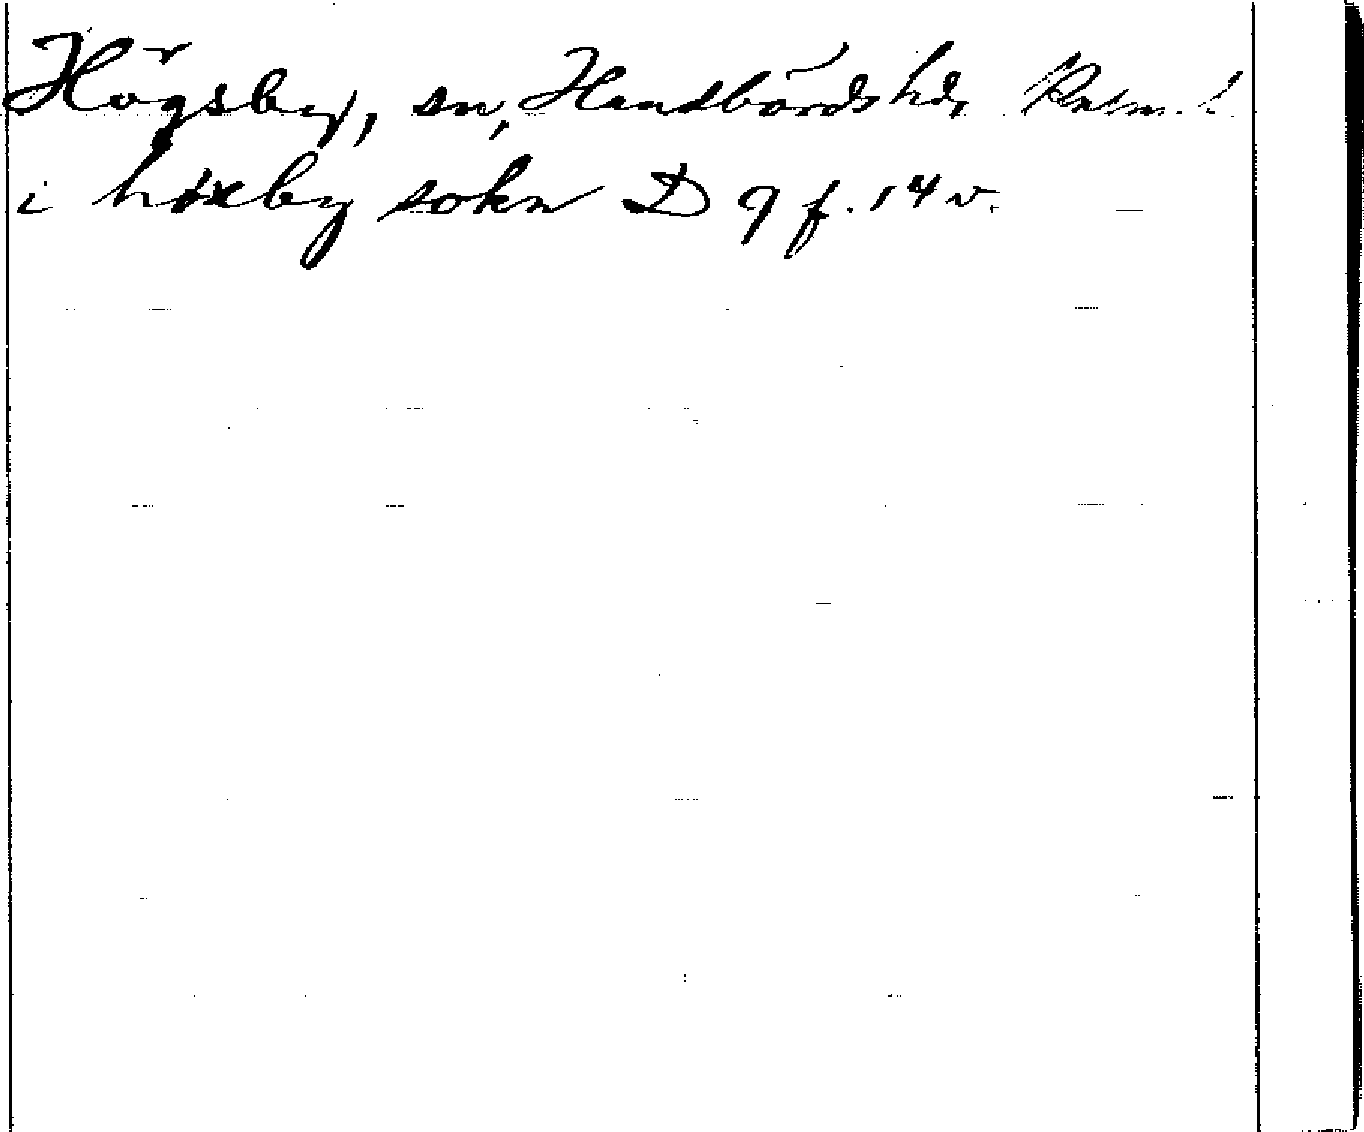 Högsby, sn, Handbörds hd, Kalm. l.
i høxby sokn D 9 f. 14 v.